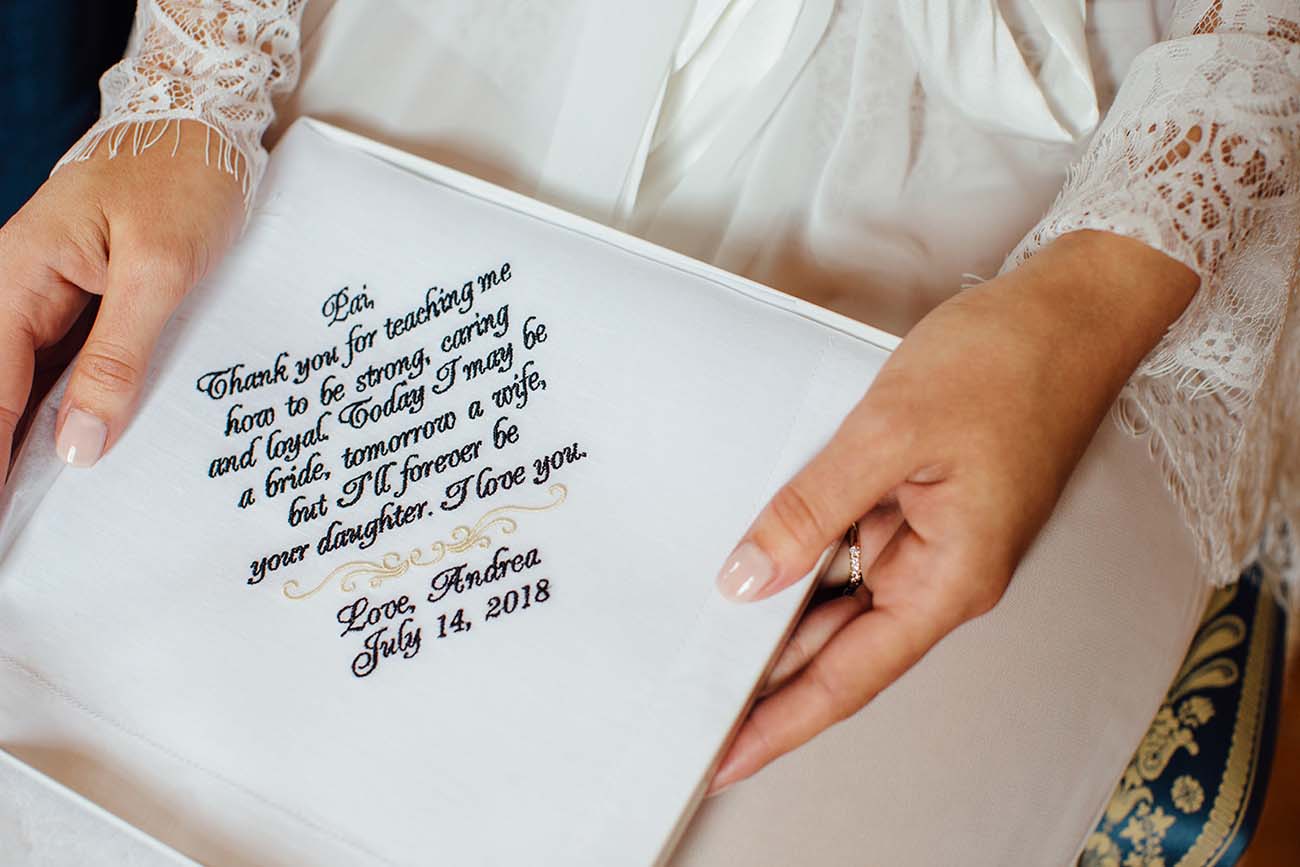 Pai,
Thank you for teaching me
how to be strong, caring
and loyal. Today I may be
a bride, tomorrow a wife,
but I'll forever be
your daughter. I love you.
Love, Andrea
July 14, 2018